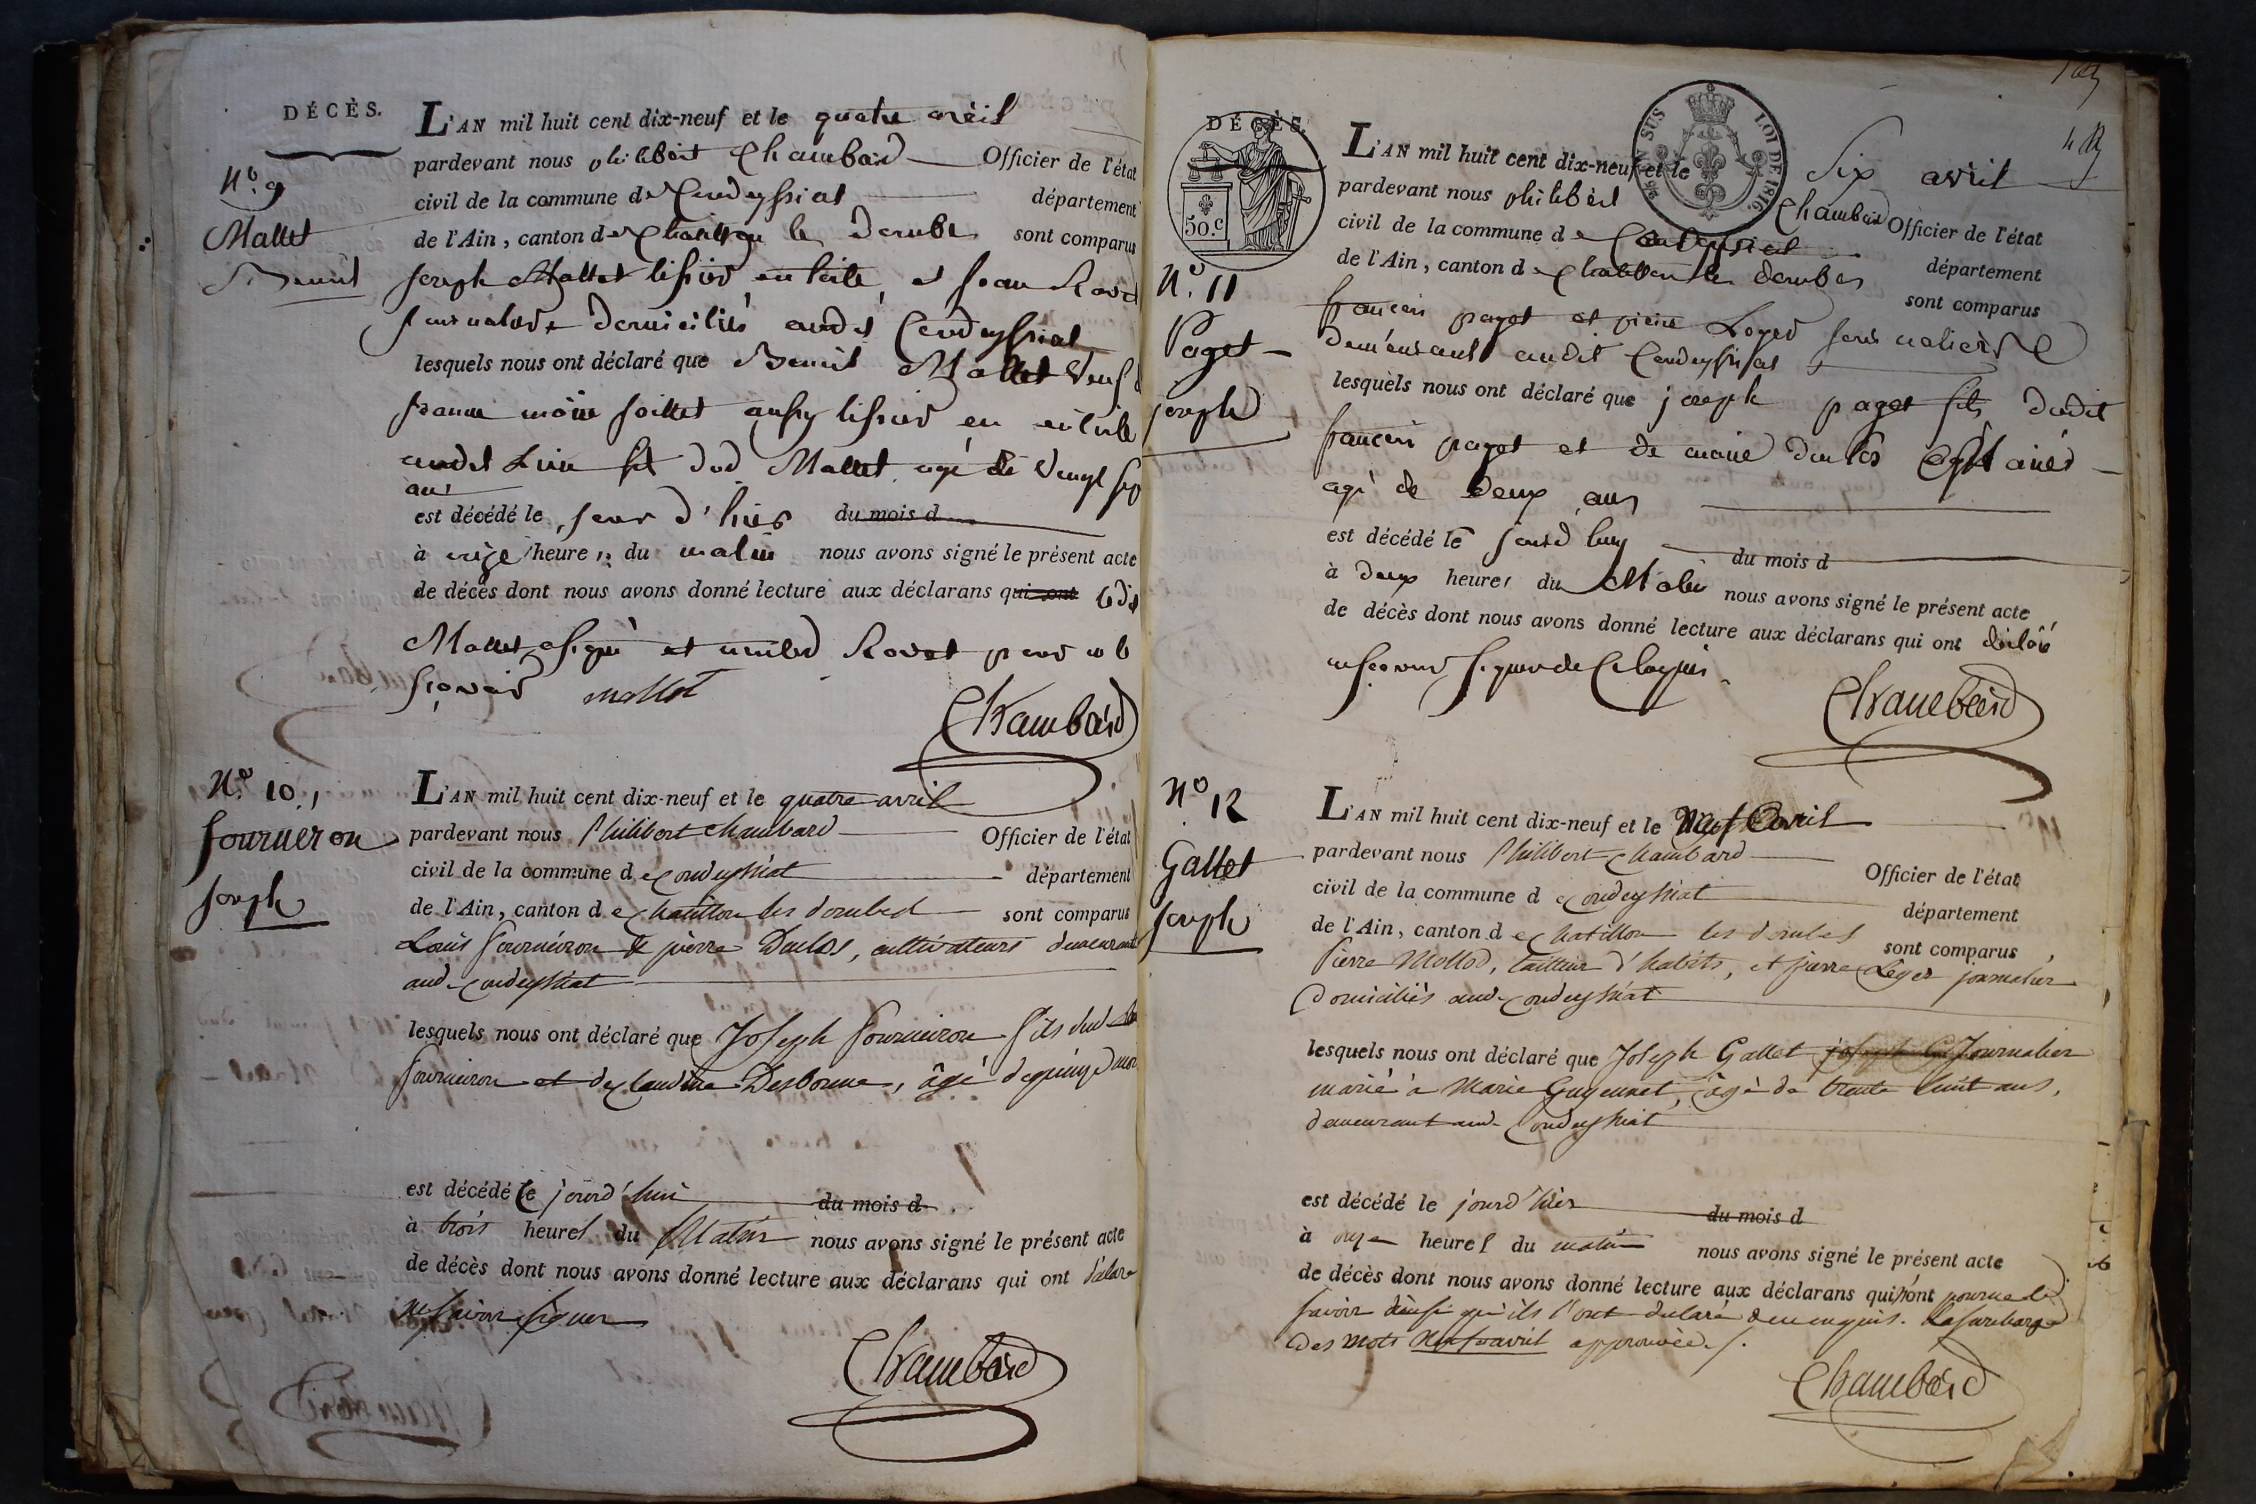 DÉCÈS.
L'AN mil huit cent dix-neuf et le quatre avril
pardevant nous philibert Chambard Officier de l'état
civil de la commune de Condeyssiat département
de l'Ain, canton de Chatillon les Dombes sont comparus
N.º 9
Mallet
Benoit
joseph Mallet tissier en toile, et jean
domiciliés audit Condeyssiat
lesquels nous ont déclaré que Benoit Mallet veuf
aussy tissier en
audit Lieu fils dud. Mallet agé de vengt sep
ans
est décédé le jour d'hier du mois d
à onze heures du matin nous avons signé le présent acte
de décès dont nous avons donné lecture aux déclarans qui ont ledit
Mallet a signé et non led
mallet
Chambard
N.º 10.
fourneron
joseph
L'AN mil huit cent dix-neuf et le quatre avril
pardevant nous Philibert chambard Officier de l'état
civil de la commune de Condeyssiat département
de l'Ain, canton de chatillon les dombes sont comparus
Louis fourneron & pierre Duclos, cultivateurs demeurant
aud. Condeyssiat
lesquels nous ont déclaré que Joseph fourneron fils dud.
fourneron et de Claudine Desbonne, âgé de quinze mois
est décédé le jourd'hui du mois d
à trois heures du Matin nous avons signé le présent acte
de décès dont nous avons donné lecture aux déclarans qui ont déclaré
ne savoir signer
Chambard
DÉCÈS.
50.c
EN SUS
LOI DE 1816.
L'AN mil huit cent dix-neuf et le Six avril
pardevant nous philibert Chambard Officier de l'état
civil de la commune de Condeyssiat département
de l'Ain, canton de Chatillon les dombes sont comparus
N.º 11
Paget
joseph
francois paget et pierre Leger journaliers
demeurant audit Condeyssiat
lesquels nous ont déclaré que joseph paget fils dudit
francois paget et de marie
agé de deux ans
est décédé le jourd'huy du mois d
à deux heures du Matin nous avons signé le présent acte
de décès dont nous avons donné lecture aux déclarans qui ont déclaré
signer de ce
Chambard
N.º 12
Gallet
joseph
L'AN mil huit cent dix-neuf et le Neuf avril
pardevant nous Philibert chambard Officier de l'état
civil de la commune de Condeyssiat département
de l'Ain, canton de chatillon les dombes sont comparus
Pierre Mollod, tailleur d'habits, et pierre Leger journalier
Domiciliés aud. Condeyssiat
lesquels nous ont déclaré que Joseph Gallet Journalier
marié à Marie Guyennet, âgé de trente huit ans,
demeurant aud. Condeyssiat
est décédé le jourd'hier du mois d
à onze heures du matin nous avons signé le présent acte
de décès dont nous avons donné lecture aux déclarans qui n'ont pour ne le
savoir ainsi qu'ils l'ont déclaré de ce enquis. La surcharge
des mots Neuf avril approuvée.
Chambard